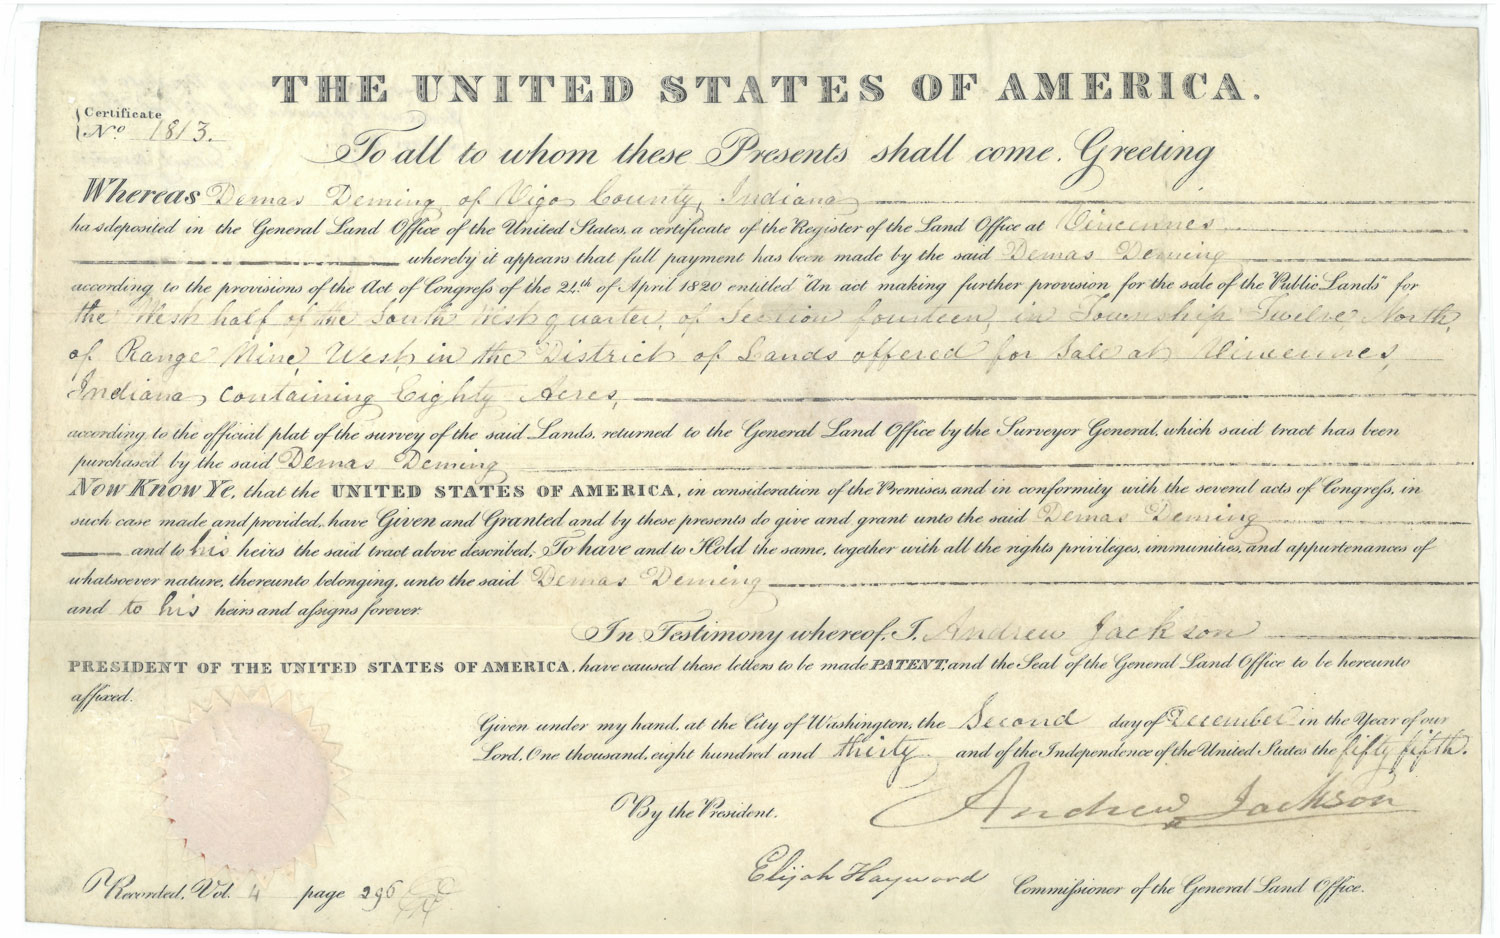 THE UNITED STATES OF AMERICA.
Certificate
No. 1813.
To all to whom these Presents shall come, Greeting
Whereas Demas Deming of Vigo County, Indiana
has deposited in the General Land Office of the United States, a certificate of the Register of the Land Office at Vincennes
whereby it appears that full payment has been made by the said Demas Deming
according to the provisions of the Act of Congress of the 24th of April 1820 entitled "An act making further provision for the sale of the Public Lands" for
the West half of the South West quarter, of Section fourteen, in Township Twelve North,
of Range Nine, West, in the District of Lands offered for Sale at Vincennes,
Indiana, containing Eighty Acres,
according to the official plat of the survey of the said Lands, returned to the General Land Office by the Surveyor General, which said tract has been
purchased by the said Demas Deming
Now Know Ye, that the UNITED STATES OF AMERICA, in consideration of the Premises, and in conformity with the several acts of Congress, in
such case made and provided, have Given and Granted and by these presents do give and grant unto the said Demas Deming
and to his heirs the said tract above described, To have and to Hold the same, together with all the rights privileges, immunities, and appurtenances of
whatsoever nature, thereunto belonging, unto the said Demas Deming
and to his heirs and assigns forever.
In Testimony whereof, I, Andrew Jackson
PRESIDENT OF THE UNITED STATES OF AMERICA, have caused these letters to be made PATENT, and the Seal of the General Land Office to be hereunto
affixed.
Given under my hand, at the City of Washington, the Second day of December in the Year of our
Lord, One thousand, eight hundred and thirty and of the Independence of the United States the fifty fifth.
By the President.
Andrew Jackson
Elijah Hayward Commissioner of the General Land Office.
Recorded, Vol. 4 page 296